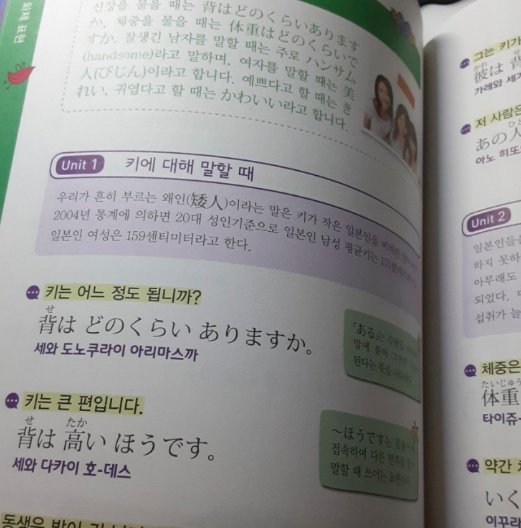 회화 표현
신장을 물을 때는 背はどのくらいあります
か, 체중을 물을 때는 体重はどのくらいで
すか. 잘생긴 남자를 말할 때는 주로 ハンサム
(handsome)라고 말하며, 여자를 말할 때는 美
人(びじん)이라고 합니다. 예쁘다고 할 때는 き
れい, 귀엽다고 할 때는 かわいい라고 합니다.
Unit 1 키에 대해 말할 때
우리가 흔히 부르는 왜인(矮人)이라는 말은 키가 작은 일본인을
2004년 통계에 의하면 20대 성인기준으로 일본인 남성 평균키는
일본인 여성은 159센티미터라고 한다.
키는 어느 정도 됩니까?
せ
背は どのくらい ありますか。
세와 도노쿠라이 아리마스까
「ある」는
키는 큰 편입니다.
せ たか
背は 高い ほうです。
세와 다카이 호-데스
～ほうです는
접속하여
말할 때 쓰이는
그는 키가
彼は 背
가레와 세
저 사람은
あの人
아노 히또
Unit 2
일본인들
하지 못하
아무래도
되었다.
섭취가 늘
체중은
たいじゅう
体重
타이쥬-
약간
いく
이꾸라